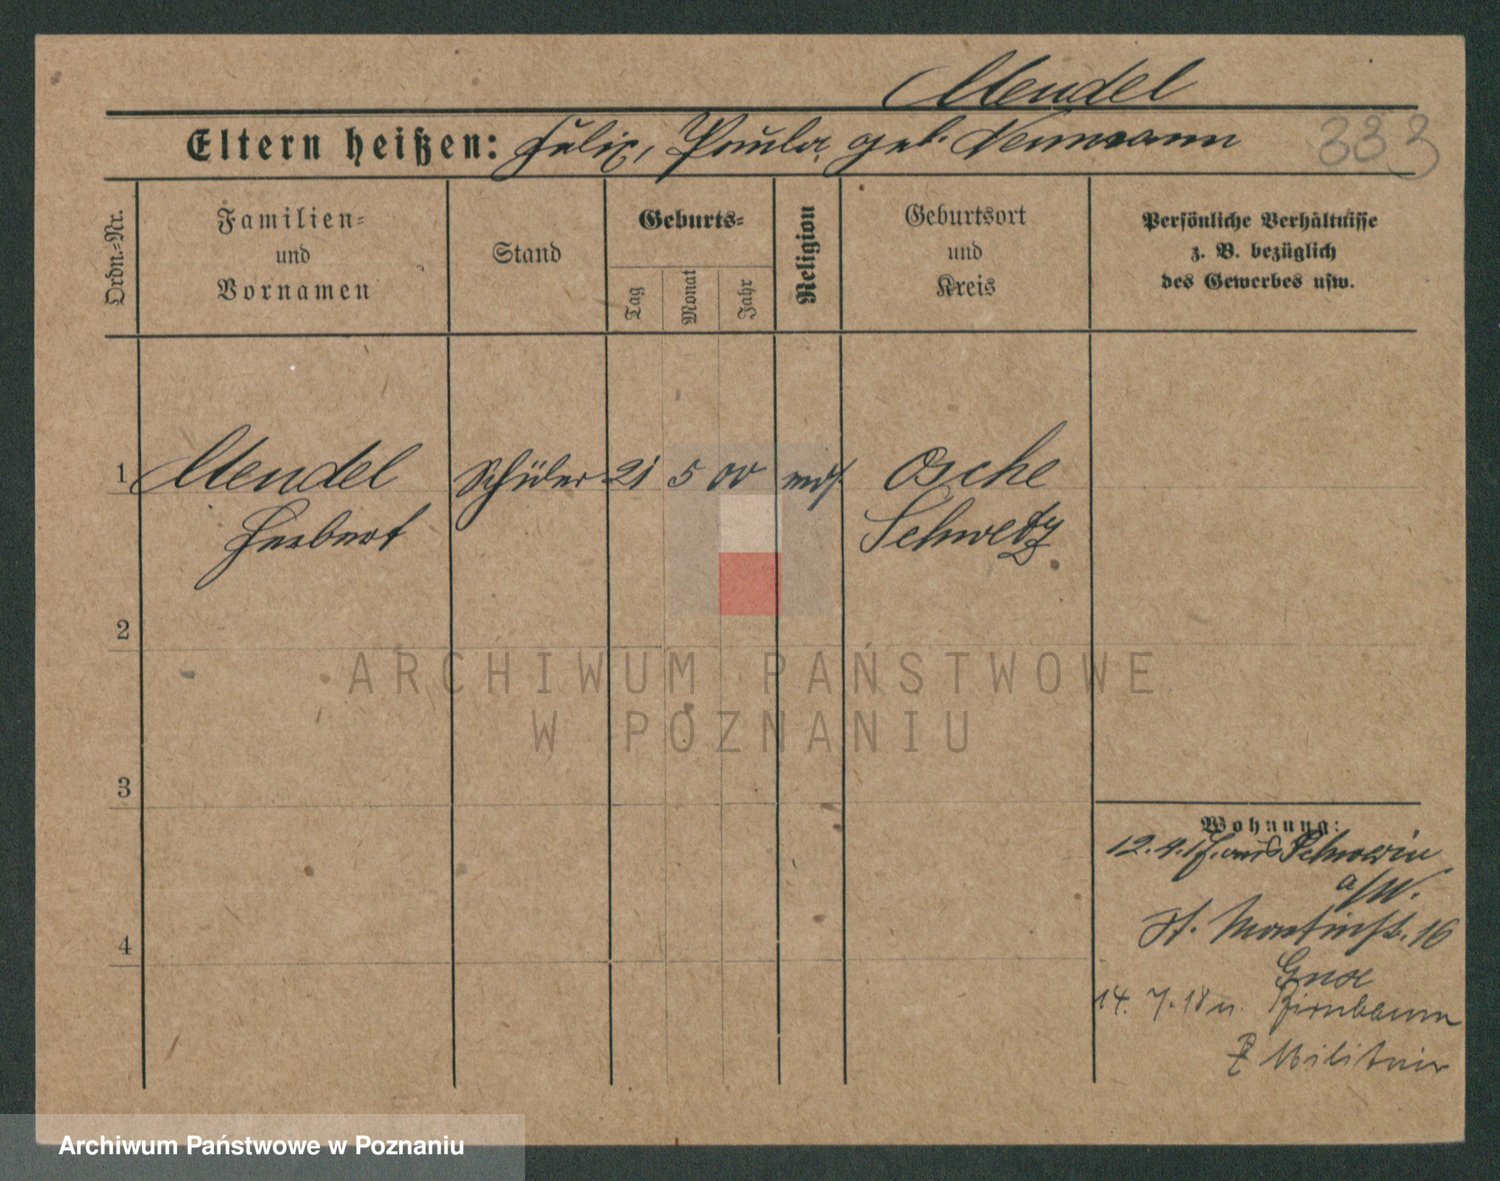 Mendel
Eltern heißen: Felix, Paula geb. Neumann
333
Ordn.=Nr.
Familien=
und
Vornamen
Stand
Geburts=
Tag
Monat
Jahr
Religion
Geburtsort
und
Kreis
Persönliche Verhältnisse
z. B. bezüglich
des Gewerbes usw.
1 Mendel Schüler 21 5 00 mos. Osche
Herbert Schwetz
2
3
4
Wohnung:
12.4.17. aus Schwerin
a/W.
St. Martinstr. 16
14. 7. 18 n. Birnbaum
z Militär
ARCHIWUM PAŃSTWOWE
W POZNANIU
Archiwum Państwowe w Poznaniu